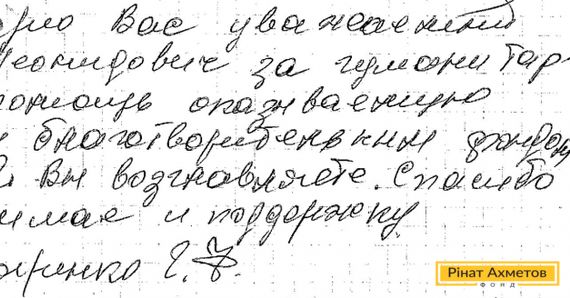 рю Вас уважаемый
Леонидович за гуманитар
помощь оказываемую
благотворительным фондом
Вы возглавляете. Спасибо
имае и поддержку
Рінат Ахметов
ФОНД